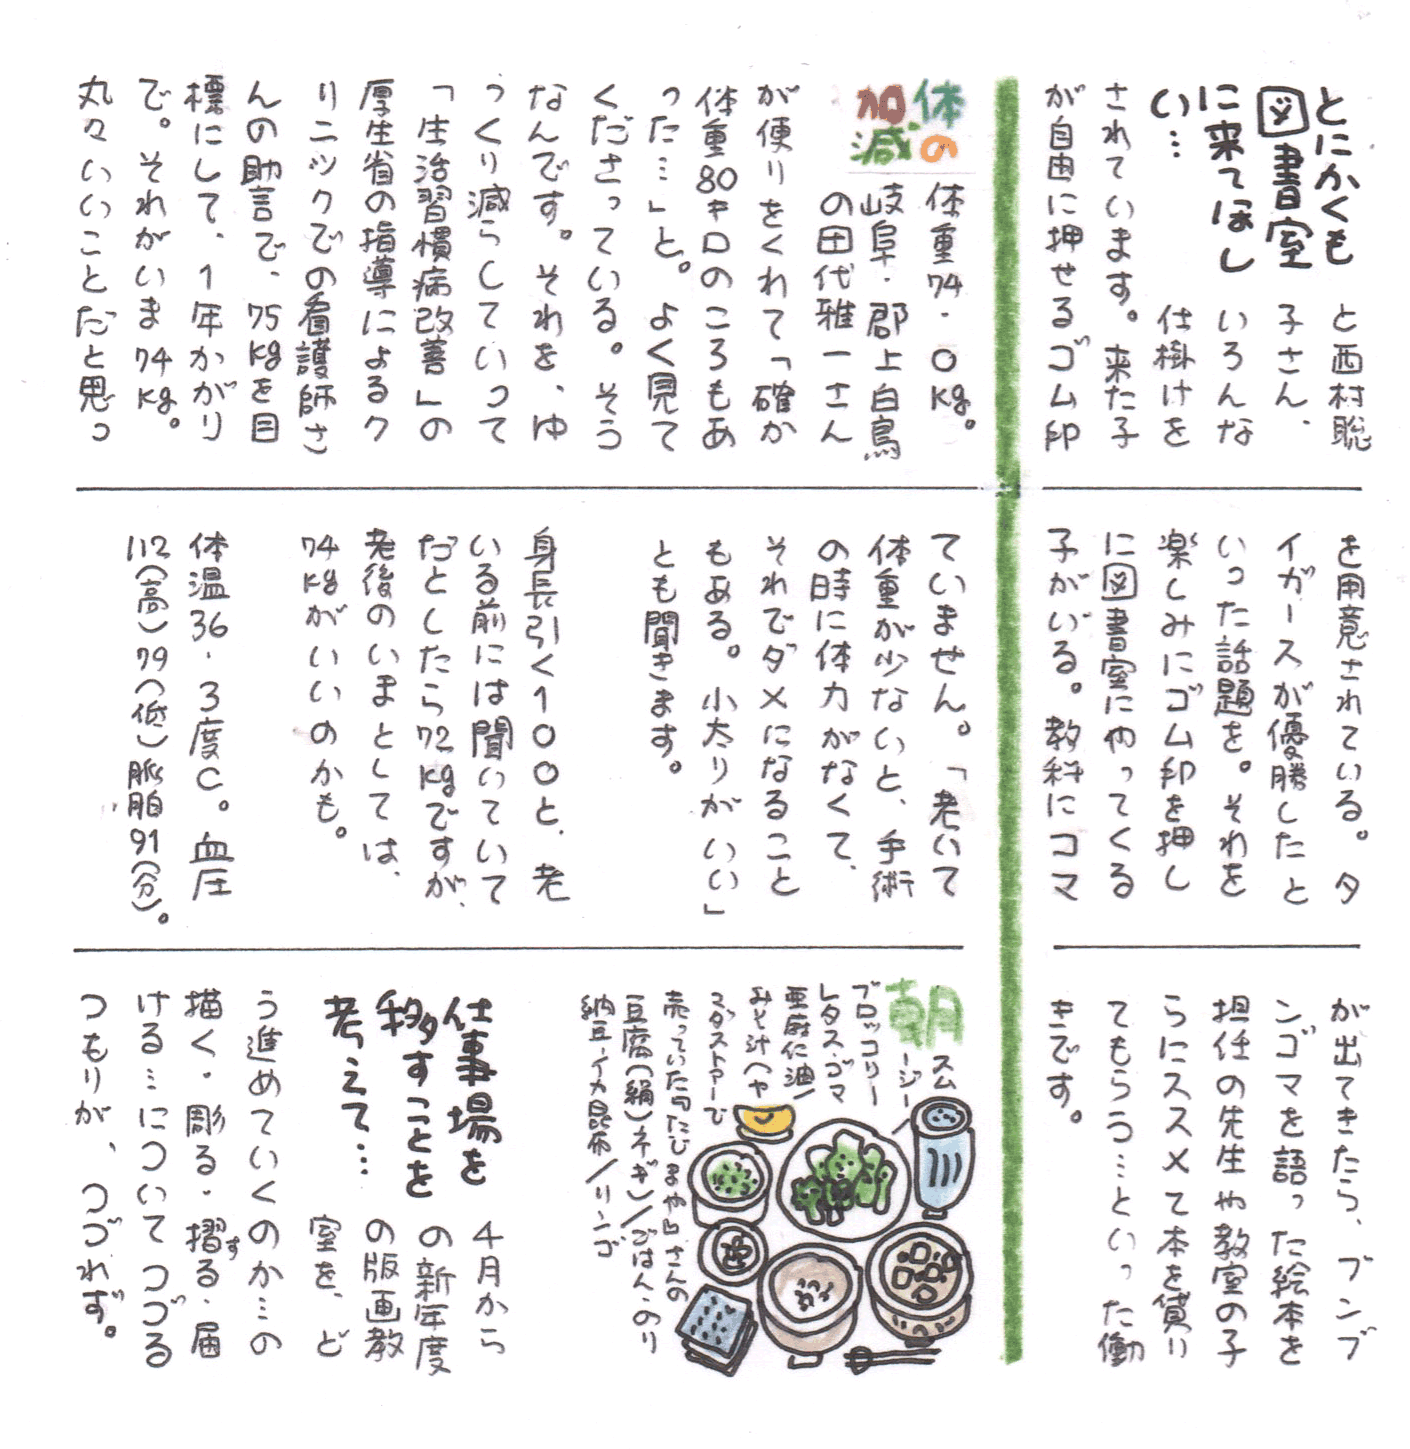 とにかくも
図書室
に来てほし
い…
と西村聡
子さん、
いろんな
仕掛けを
されています。来た子
が自由に押せるゴム印
を用意されている。タ
イガースが優勝したと
いった話題を。それを
楽しみにゴム印を押し
に図書室にやってくる
子がいる。教科にコマ
が出てきたら、ブンブ
ンゴマを語った絵本を
担任の先生や教室の子
らにススメて本を貸り
てもらう…といった働
きです。
体の
加減
体重74.0kg。
岐阜・郡上白鳥
の田代雅一さん
が便りをくれて「確か
体重80キロのころもあ
った…」と。よく見て
くださっている。そう
なんです。それを、ゆ
っくり減らしていって
「生活習慣病改善」の
厚生省の指導によるク
リニックでの看護師さ
んの助言で、75kgを目
標にして、1年かがり
で。それがいま74kg。
丸々いいことだと思っ
ていません。「老いて
体重が少ないと、手術
の時に体力がなくて、
それでダメになること
もある。小太りがいい」
とも聞きます。
身長引く100と、老
いる前には聞いていて
だとしたら72kgですが、
老後のいまとしては、
74kgがいいのかも。
体温36.3度C。血圧
112(高)79(低)脈拍91(分)。
朝
スム
ージー
ブロッコリー
レタス・ゴマ
亜麻仁油/
みそ汁(ヤ
マダストアーで
売っていた「たじまや」さんの
豆腐(絹)ネギ)/ごはん・のり
納豆・イカ昆布/リンゴ
仕事場を
移すことを
考えて…
4月から
の新年度
の版画教
室を、ど
う進めていくのか…の
描く・彫る・摺る・届
す
ける…についてつづる
つもりが、つづれず。